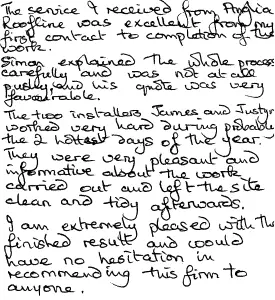 The service I received from Anglia
Roofline was excellent from my
first contact to completion of the
work.
Simon explained the whole process
carefully and was not at all
pushy, and his quote was very
favourable.
The two installers James and Justyn
worked very hard during probably
the 2 hottest days of the year.
They were very pleasant and
informative about the work
carried out and left the site
clean and tidy afterwards.
I am extremely pleased with the
finished result and would
have no hesitation in
recommending this firm to
anyone.